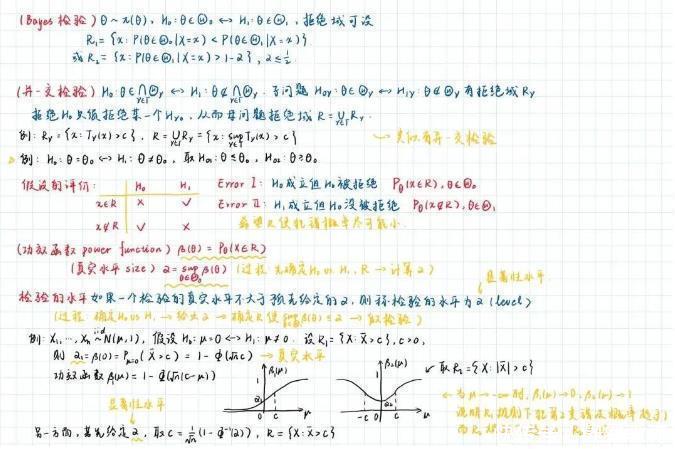 (Bayes 检验) θ ~ π(θ), H₀: θ∈Θ₀ ↔ H₁: θ∈Θ₁, 拒绝域可设
R₁ = {x: P(θ∈Θ₀|X=x) < P(θ∈Θ₁|X=x)}
或 R₂ = {x: P(θ∈Θ₁|X=x) > 1-α}, α≤½
(并-交检验) H₀: θ∈⋂Θγ ↔ H₁: θ∉⋂Θγ. 子问题 H₀γ: θ∈Θγ ↔ H₁γ: θ∉Θγ 有拒绝域 Rγ
拒绝H₀只须拒绝某一个Hγ₀, 从而母问题拒绝域 R = ⋃Rγ.
例: Rγ = {x: Tγ(x)>c}, R = ⋃Rγ = {x: sup Tγ(x) > c} → 类似有并-交检验
例: H₀: θ=θ₀ ↔ H₁: θ≠θ₀, 取 H₀₁: θ≤θ₀, H₀₂: θ≥θ₀
假设的评价: H₀ H₁ Error I: H₀成立但H₀被拒绝 Pθ(X∈R), θ∈Θ₀
x∈R × √ Error II: H₁成立但H₀没被拒绝 Pθ(X∉R), θ∈Θ₁
x∉R √ × 希望R使犯错概率尽可能小
(功效函数 power function) β(θ) = Pθ(X∈R)
(真实水平 size) α = sup β(θ) (过程: 先确定H₀ vs H₁, R → 计算α)
显著性水平
检验的水平 如果一个检验的真实水平不大于预先给定的α, 则称检验的水平为α (level)
(过程: 确定H₀ vs H₁ → 给出α → 确定R使 sup β(θ) ≤ α → 取检验)
例: X₁,…,Xₙ ~iid N(μ,1), 假设H₀: μ=0 ↔ H₁: μ≠0. 设R₁={X: X̄>c}, c>0,
则 α₁ = β(0) = Pμ₌₀(X̄>c) = 1-Φ(√n c) → 真实水平
功效函数 β₁(μ) = 1-Φ(√n(c-μ))
β₁(μ) 1 α₁ 0 c μ
β₂(μ) 1 α₂ -c 0 c μ
取R₂={X: |X̄|>c}
当μ→-∞时, β₁(μ)→0, β₂(μ)→1
说明R₁
显著性水平
另一方面, 若先给定α, 取c = 1/√n (1-Φ⁻¹(α)), R = {X: X̄>c}